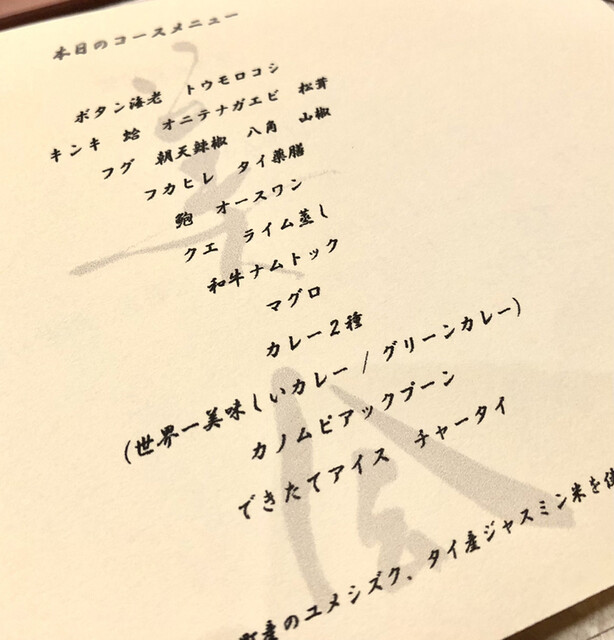 本日のコースメニュー
ボタン海老 トウモロコシ
キンキ 蛤 オニテナガエビ 松茸
フグ 朝天辣椒 八角 山椒
フカヒレ タイ薬膳
鮑 オースワン
クエ ライム蒸し
和牛ナムトック
マグロ
カレー2種
(世界一美味しいカレー / グリーンカレー)
カノムピアックプーン
できたてアイス チャータイ
町産のユメシズク、タイ産ジャスミン米を使